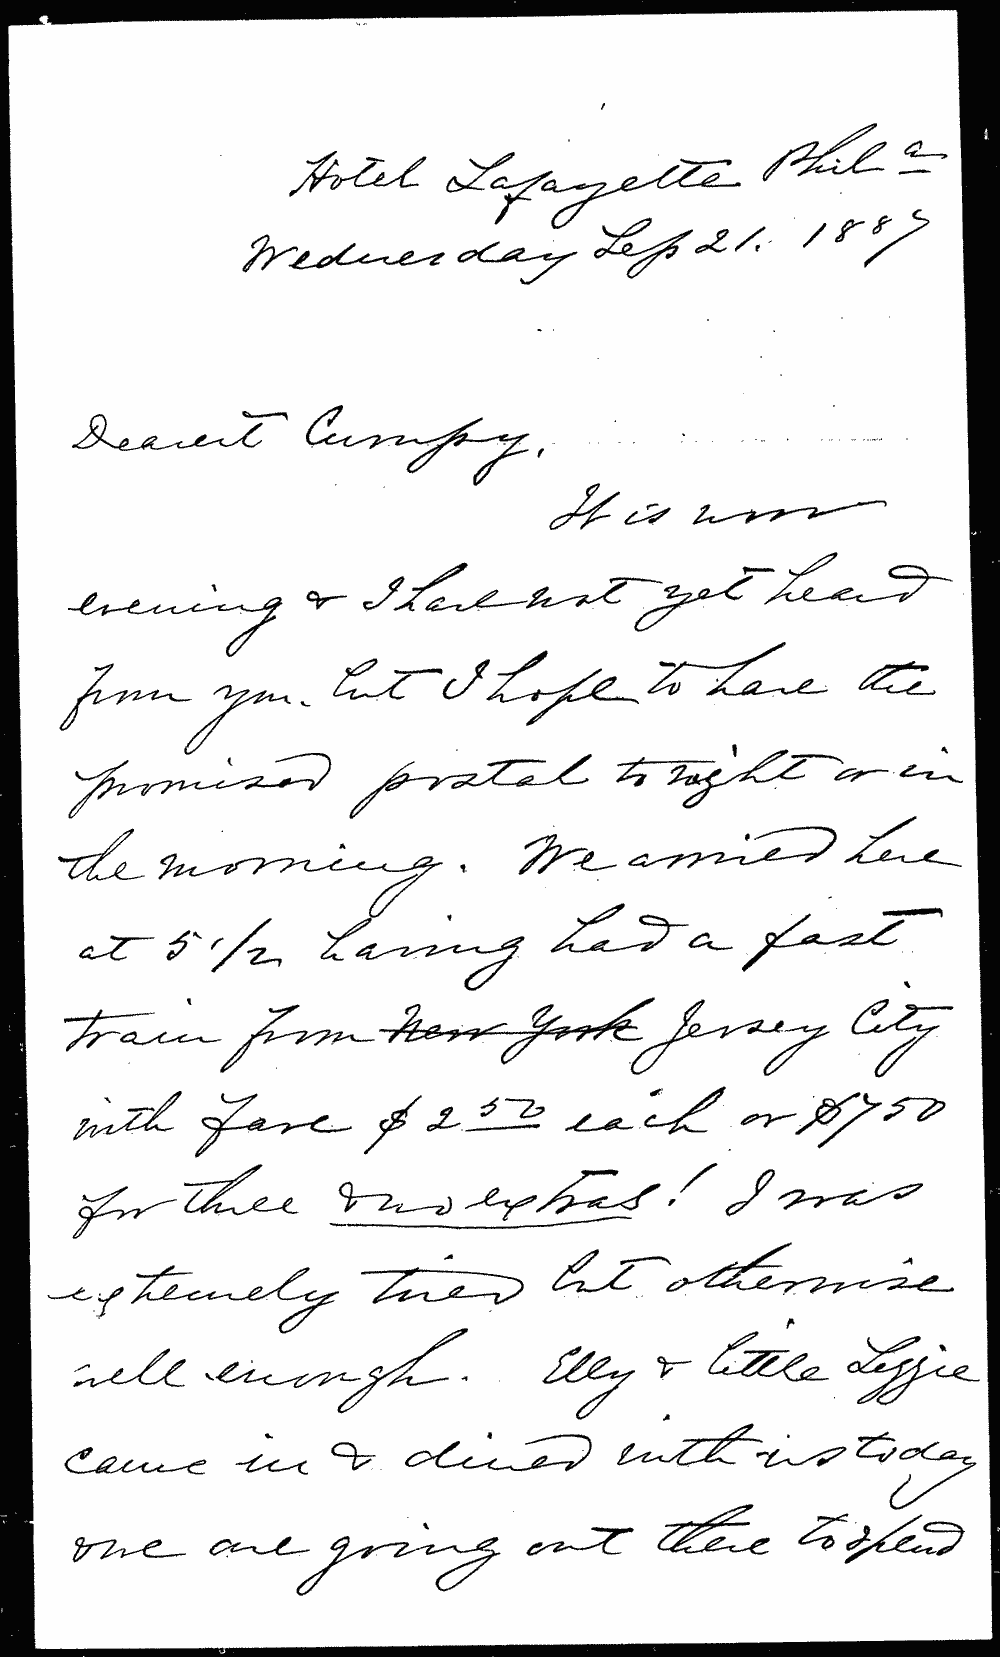 Hotel Lafayette Phila
Wednesday Sep 21. 1887
Dearest Cumpy,
It is now
evening & I have not yet heard
from you. but I hope to have the
promised postal tonight or in
the morning. We arrived here
at 5 1/2 having had a fast
train from New York Jersey City
with fare $2 50 each or $7 50
for three & no extras! I was
extremely tired but otherwise
well enough. Elly & little Lizzie
came in & dined with us today
& we are going out there to spend